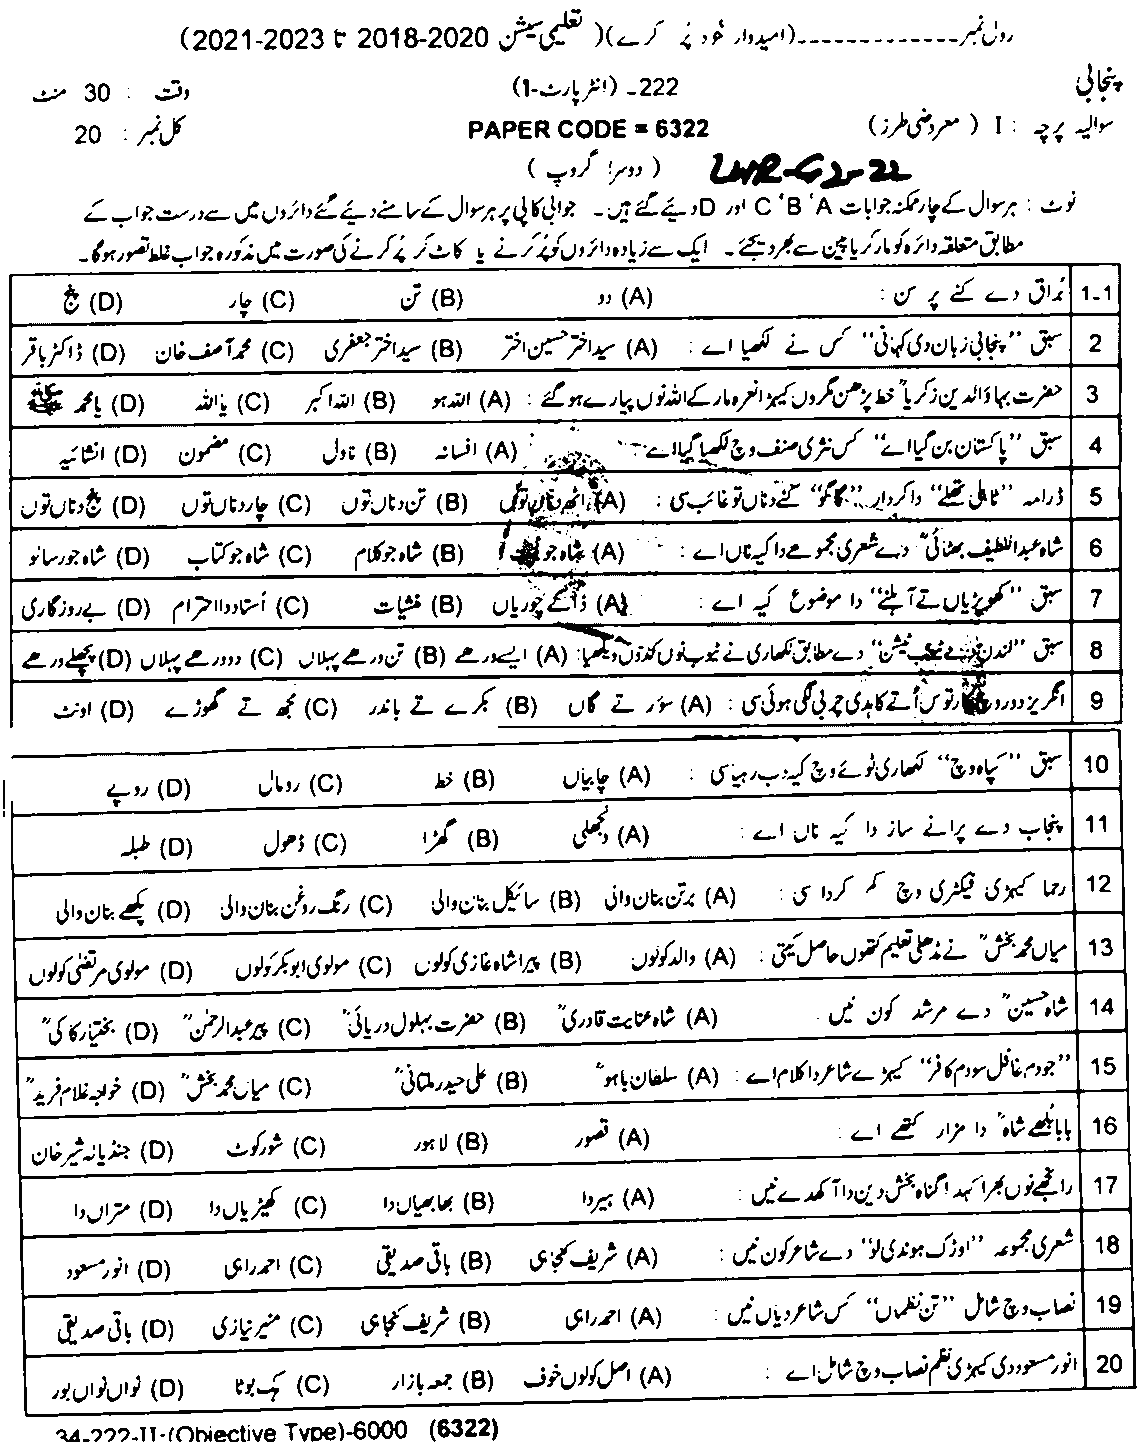 رول نمبر-------------(امیدوار خود پُر کرے)( تعلیمی سیشن 2020-2018 تا 2023-2021)
پنجابی
222۔ (انٹر پارٹ-1)
وقت : 30 منٹ
سوالیہ پرچہ : I ( معروضی طرز)
PAPER CODE = 6322
کل نمبر : 20
( دوسرا گروپ )
LHR-G2-22
نوٹ : ہر سوال کے چار ممکنہ جوابات A ' B ' C اور D دیئے گئے ہیں۔ جوابی کاپی پر ہر سوال کے سامنے دیئے گئے دائروں میں سے درست جواب کے
مطابق متعلقہ دائرہ کو مارکر یا پین سے بھر دیجئے۔ ایک سے زیادہ دائروں کو پُر کرنے یا کاٹ کر پُر کرنے کی صورت میں مذکورہ جواب غلط تصور ہوگا۔
1-1 بُراق دے کنے پر سن : (A) دو (B) تن (C) چار (D) پنج
2 سبق "پنجابی زبان دی کہانی" کس نے لکھیا اے : (A) سید اختر حسین اختر (B) سید اختر جعفری (C) محمد آصف خان (D) ڈاکٹر باقر
3 حضرت بہاؤالدین زکریاؒ خط پڑھن مگروں کیہڑا نعرہ مار کے اللہ نوں پیارے ہو گئے : (A) اللہ ھو (B) اللہ اکبر (C) یا اللہ (D) یا محمد ﷺ
4 سبق "پاکستان بن گیا اے" کس نثری صنف وچ لکھیا گیا اے : (A) افسانہ (B) ناول (C) مضمون (D) انشائیہ
5 ڈرامہ "ٹاہلی تھلے" دا کردار "گاگو" کنے دناں تو غائب سی : (A) اٹھ دناں توں (B) تن دناں توں (C) چار دناں توں (D) پنج دناں توں
6 شاہ عبداللطیف بھٹائیؒ دے شعری مجموعے دا کیہ ناں اے : (A) شاہ جو (B) شاہ جو کلام (C) شاہ جو کتاب (D) شاہ جو رسالو
7 سبق "کھوپڑیاں تے آہلنے" دا موضوع کیہ اے : (A) ڈاکے چوریاں (B) منشیات (C) اُستاد دا احترام (D) بے روزگاری
8 سبق "لندن دے ٹیوب نیشن" دے مطابق لکھاری نے ٹیوب نوں کدوں ویکھیا: (A) ایسے ورھے (B) تن ورھے پہلاں (C) دو ورھے پہلاں (D) پچھلے ورھے
9 انگریز دور وچ کارتوس اُتے کاہدی چربی لگی ہوئی سی : (A) سؤر تے گاں (B) بکرے تے باندر (C) مجھ تے گھوڑے (D) اونٹ
10 سبق "کپاہ وچ" لکھاری ٹوئے وچ کیہ دب رہیا سی : (A) چابیاں (B) خط (C) رومال (D) روپے
11 پنجاب دے پرانے ساز دا کیہ ناں اے : (A) ونجھلی (B) گھڑا (C) ڈھول (D) طبلہ
12 رحما کیہڑی فیکٹری وچ کم کردا سی : (A) برتن بنان والی (B) سائیکل بنان والی (C) رنگ روغن بنان والی (D) پکھے بنان والی
13 میاں محمد بخشؒ نے مڈھلی تعلیم کتھوں حاصل کیتی : (A) والد کولوں (B) پیرا شاہ غازی کولوں (C) مولوی ابوبکر کولوں (D) مولوی مرتضٰی کولوں
14 شاہ حسینؒ دے مرشد کون نیں : (A) شاہ عنایت قادریؒ (B) حضرت بہلول دریائیؒ (C) پیر عبدالرحمٰنؒ (D) بختیار کاکیؒ
15 "جو دم غافل سو دم کافر" کیہڑے شاعر دا کلام اے : (A) سلطان باہوؒ (B) علی حیدر ملتانیؒ (C) میاں محمد بخشؒ (D) خواجہ غلام فریدؒ
16 بابا بُلھے شاہؒ دا مزار کتھے اے : (A) قصور (B) لاہور (C) شورکوٹ (D) جنڈیالہ شیر خان
17 رانجھے نوں بھرا کہدا گناہ بخش دین دا آکھدے نیں : (A) ہیر دا (B) بھابھیاں دا (C) کھیڑیاں دا (D) متراں دا
18 شعری مجموعہ "اوڑک ہوندی لو" دے شاعر کون نیں : (A) شریف کنجاہی (B) باقی صدیقی (C) احمد راہی (D) انور مسعود
19 نصاب وچ شامل "تن نظماں" کس شاعر دیاں نیں : (A) احمد راہی (B) شریف کنجاہی (C) منیر نیازی (D) باقی صدیقی
20 انور مسعود دی کیہڑی نظم نصاب وچ شامل اے : (A) اصل کولوں خوف (B) جمعہ بازار (C) ہک بوٹا (D) نواں نواں بور
34-222-II-(Objective Type)-6000 (6322)